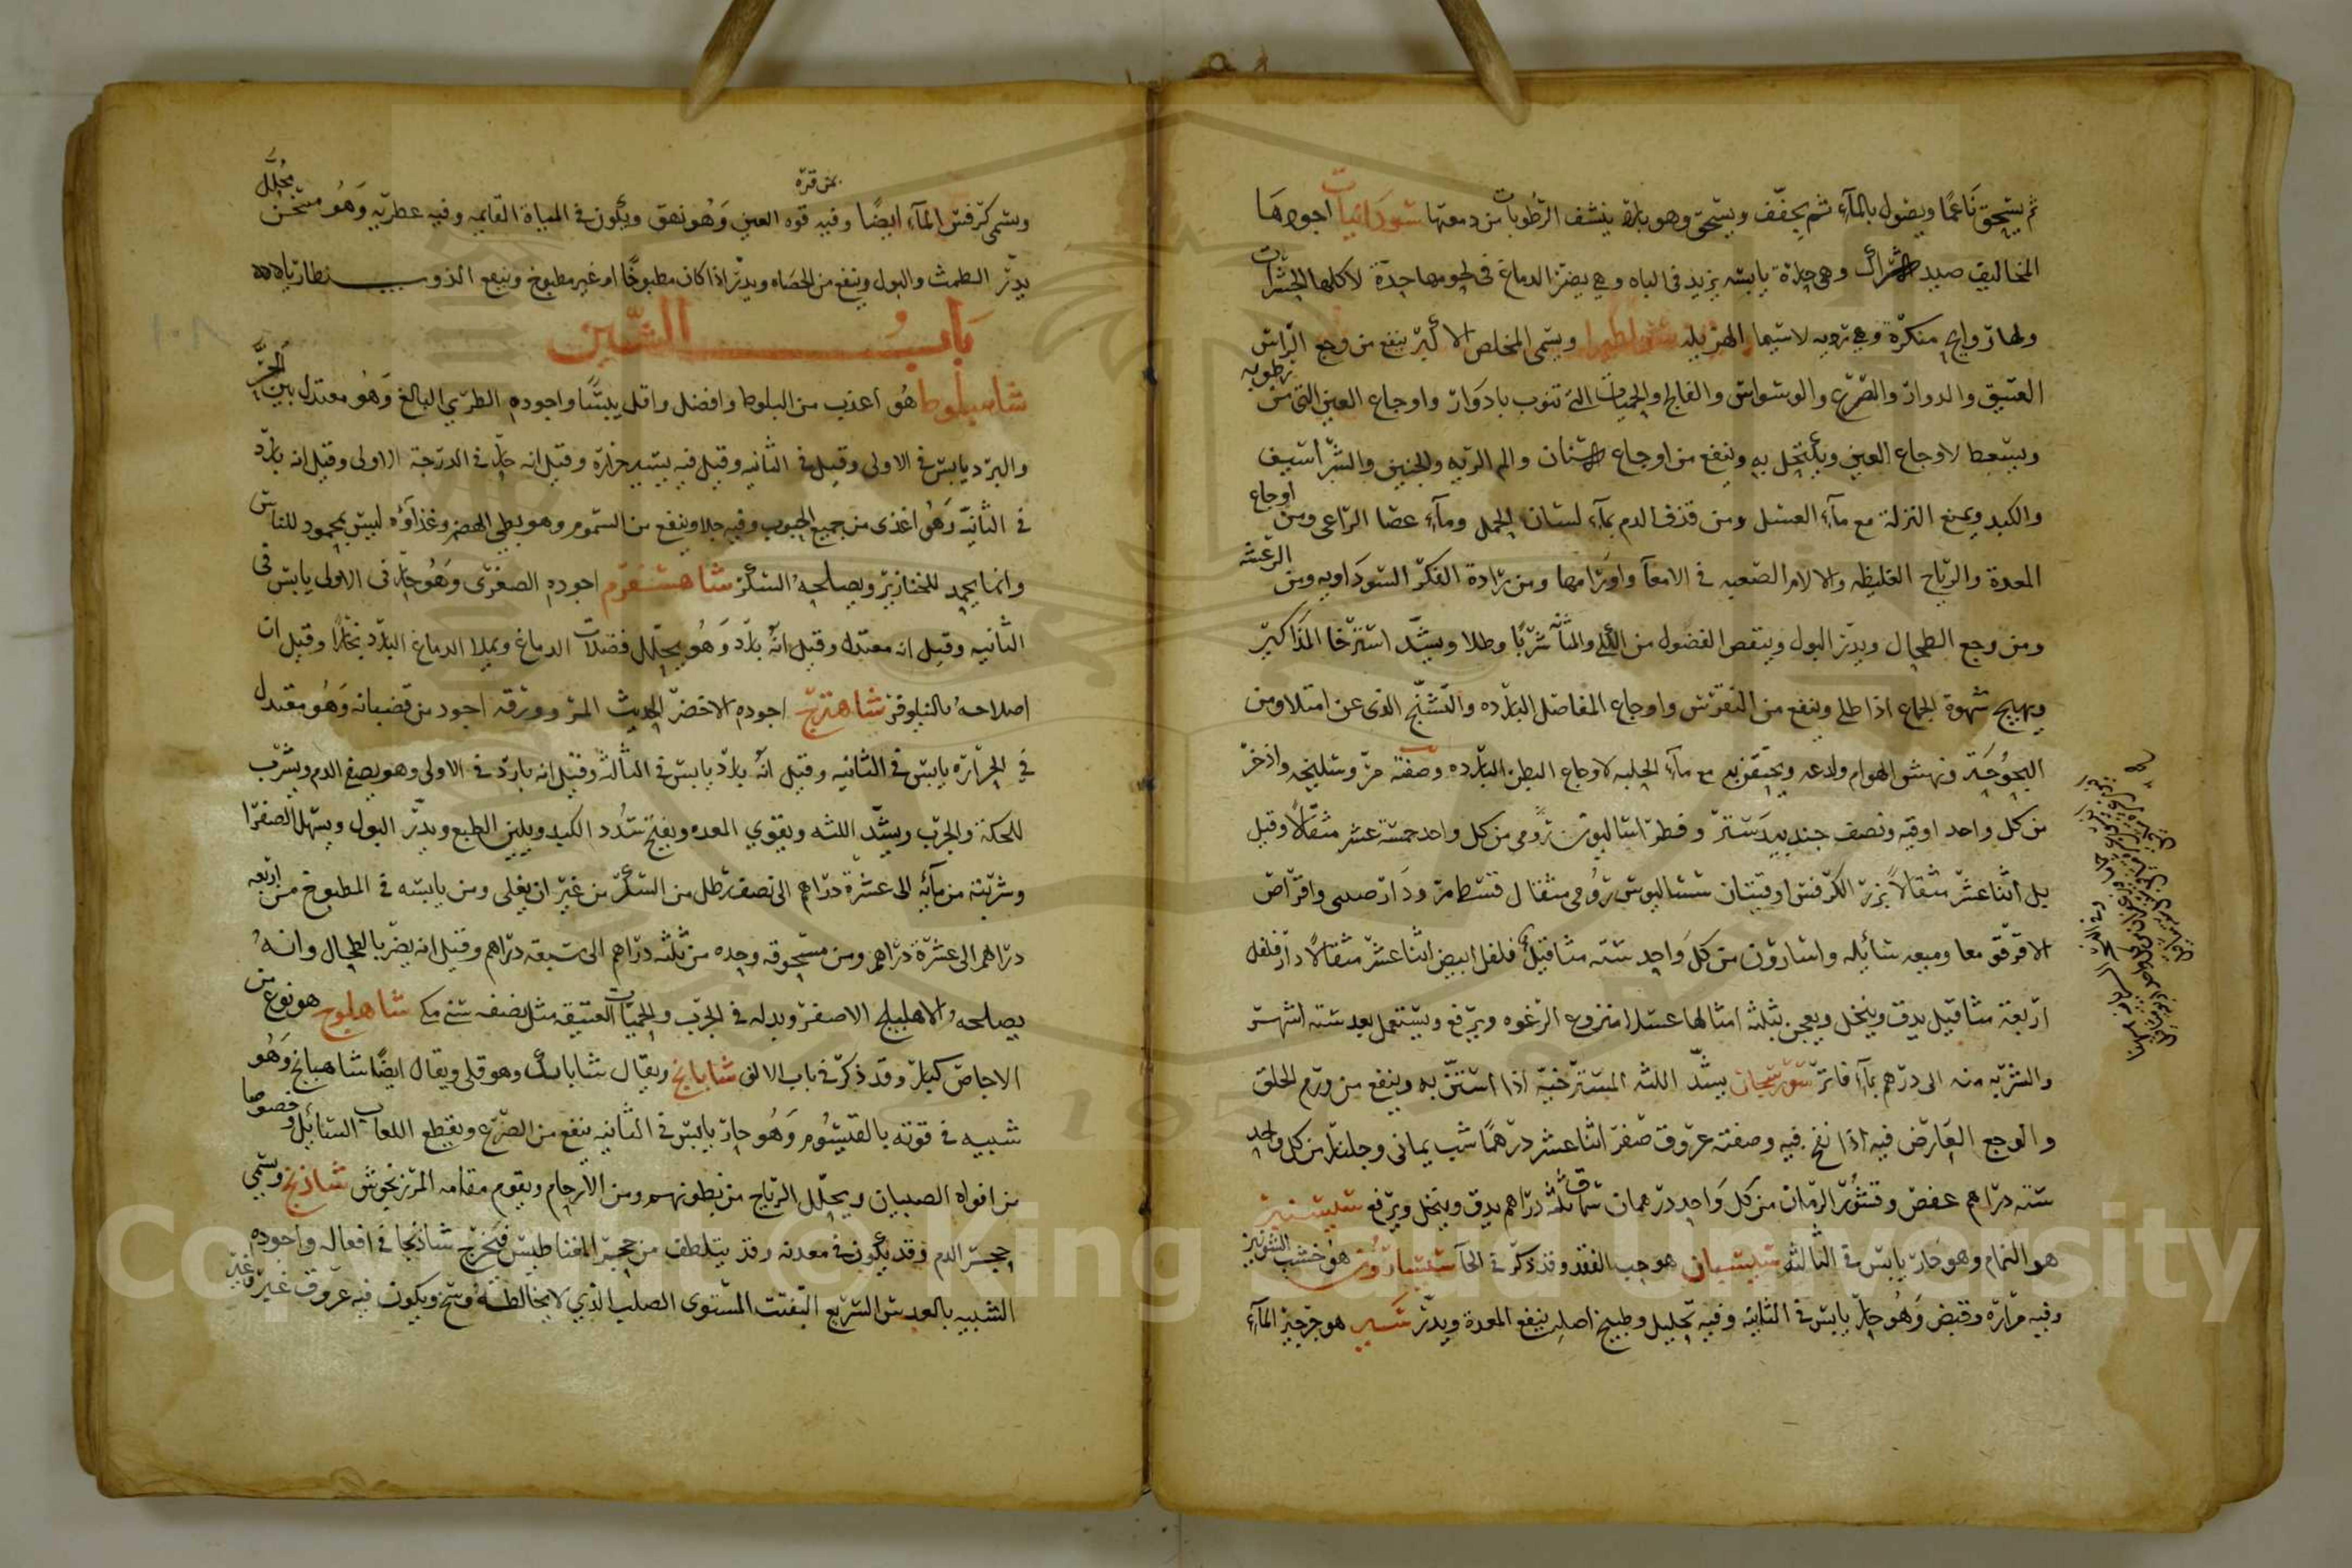 ثم يسحق ناعما ويصول بالمآء ثم يجفف ويسحق وهو بارد ينشف الرطوبات من دمعتها سودانيات اجودها
المخاليف صيد الشراك وهي حارة يابسه يزيد في الباه وهي يضر الدماغ في لحومها حدة لاكلها الحشرات
ولها روايح منكرة وهي رديه لاسيما الهزيله سوطيرا ويسمى المخلص الاكبر ينفع من وجع الراس
العتيق والدوار والصرع والوسواس والفالج والحميات التى تنوب بادوار واوجاع العين التى من رطوبه
ويسعط لاوجاع العين ويكتحل به وينفع من اوجاع الاسنان والم الريه والجنبين والشراسيف
والكبد ويمنع النزلة مع مآء العسل ومن قذف الدم بمآء لسان الحمل ومآء عصا الراعى ومن اوجاع
المعدة والرياح الغليظه والالام الصعبه في الامعآ واورامها ومن رادة الفكر السوداويه ومن الرعشه
ومن وجع الطحال ويدر البول وينقص الفضول من الكلى والمثانه شربا وطلا ويشد استرخا المذاكير
ويهيج شهوة الجماع اذا طلي وينفع من النقرس واوجاع المفاصل البارده والتشنج الذى عن امتلا ومن
البحوحة ونهش الهوام ولدغه ويحتقن به مع مآء الحلبه لاوجاع البطن البارده وصفته مر وسليخه واذخر
من كل واحد اوقيه ونصف جندبيدستر وفطراساليون رومي من كل واحد خمسة عشر مثقالا وقيل
بل اثنا عشر مثقالا بزر الكرفس اوقيتان سساليوس رومي مثقال قسط مر ودار صينى واقراص
الاقرقو معا وميعه سائله واسارون من كل واحد سته مثاقيل فلفل ابيض اثنا عشر مثقالا دار فلفل
اربعة مثاقيل يدق وينخل ويعجن بثلثه امثالها عسلا منزوع الرغوه ويرفع ويستعمل بعد سته اشهر
والشربه منه الى درهم بمآء فاتر سورنجان يشد اللثه المسترخيه اذا استن به وينفع من ورم الحلق
والوجع العارض فيه اذا نفخ فيه وصفته عروق صفر اثنا عشر درهما شب يمانى وجلنار من كل واحد
سته دراهم عفص وقشور الرمان من كل واحد درهمان سماق ثلثه دراهم يدق وينخل ويرفع سيسنبر
هو النمام وهو حار يابس في الثالثه سيسبان هو حب الفقد وقد ذكر في الحآ سيسارون هو خشب الشونيز
وفيه مرارة وقبض وهو حار يابس في الثانيه وفيه تحليل وطبيخ اصله ينفع المعدة ويدر سير هو جرجير المآء
ويسمى كرفس المآء ايضا وفيه قوه العين وهو نهق ويكون في المياة القايمه وفيه عطريه وهو مسخن محلل
يدر الطمث والبول وينفع من الحصاه ويدر اذا كان مطبوخا او غير مطبوخ وينفع
باب الشين
شاهبلوط هو اعذب من البلوط وافضل واقل يبسا واجوده الطري البالغ وهو معتدل بين الحر
والبرد يابس في الاولى وقيل في الثانيه وقيل فيه يسير حرارة وقيل انه حار في الدرجة الاولى وقيل انه بارد
في الثانية وهو اغذى من جميع الحبوب وفيه جلا وينفع من السموم وهو بطي الهضم وغذاؤه ليس بمحمود للناس
وانما يحمد للخنازير ويصلحه السكر شاهسفرم اجوده الصغرى وهو حار في الاولى يابس في
الثانيه وقيل انه معتدل وقيل انه بارد وهو يحلل فضلات الدماغ ويملا الدماغ البارد بخارا وقيل ان
اصلاحه بالنيلوفر شاهترج اجوده الاخضر الحديث المر وورقه اجود من قضبانه وهو معتدل
في الحرارة يابس في الثانيه وقيل انه بارد يابس في الثالثه وقيل انه بارد في الاولى وهو يصفي الدم ويشرب
للحكة والجرب ويشد اللثه ويقوي المعده ويفتح سدد الكبد ويلين الطبع ويدر البول ويسهل الصفرا
وشربته من مآئه الى عشرة دراهم الى نصف رطل من السكر من غير ان يغلى ومن يابسه في المطبوخ من اربعه
دراهم الى عشرة دراهم ومن مسحوقه وحده من ثلثه دراهم الى سبعه دراهم وقيل انه يضر بالطحال وانه
يصلحه الاهليلج الاصفر وبدله في الجرب والحميات العتيقه مثل نصفه سنى مكى شاهلوج هو نوع من
الاجاص كبار وقد ذكر في باب الالف شابابخ ويقال شابابك وهو قلى ويقال ايضا شاهبانج وهو
شبيه في قوته بالقيسوم وهو حار يابس في الثانيه ينفع من الصرع ويقطع اللعاب السائل وخصوصا
من افواه الصبيان ويحلل الرياح من بطونهم ومن الارحام ويقوم مقامه المرزنجوش شاذنج ويسمى
حجر الدم وقد يكون في معدنه وقد يتلطف من حجر المغناطيس فيخرج شاذنجا في افعاله واجوده
الشبيه بالعدس السريع التفتت المستوى الصلب الذي لا يخالطه وسخ ويكون فيه عروق غير وغير